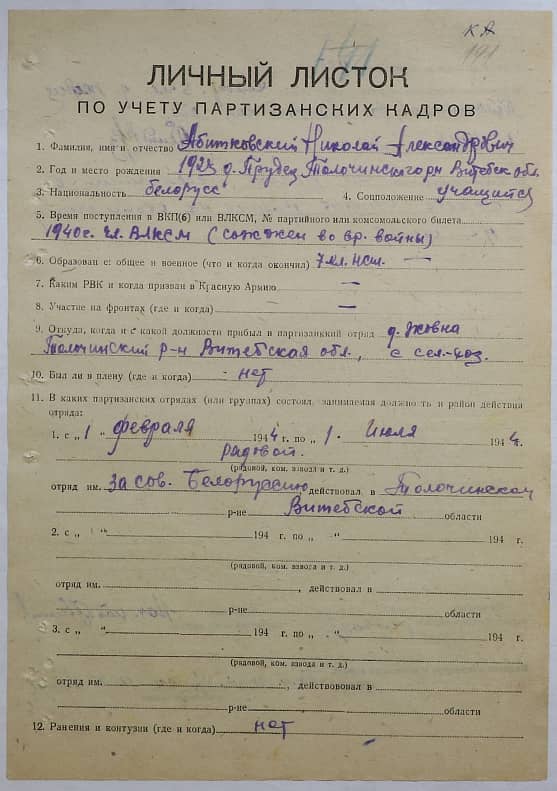 КА
191
ЛИЧНЫЙ ЛИСТОК
ПО УЧЕТУ ПАРТИЗАНСКИХ КАДРОВ
1. Фамилия, имя и отчество Абитковский Николай Александрович
2. Год и место рождения 1925 д. Трудец Толочинского рн Витебск обл.
3. Национальность белорусс 4. Соцположение учащийся
5. Время поступления в ВКП(б) или ВЛКСМ, № партийного или комсомольского билета
1940г. чл. ВЛКСМ (сожжен во вр. войны)
6. Образование: общее и военное (что и когда окончил) 7 кл. НСШ. —
7. Каким РВК и когда призван в Красную Армию —
8. Участие на фронтах (где и когда) —
9. Откуда, когда и с какой должности прибыл в партизанский отряд д. Жовна
Толочинский р-н Витебская обл., с сел-хоз.
10. Был ли в плену (где и когда) нет
11. В каких партизанских отрядах (или группах) состоял, занимаемая должность и район действия
отряда:
1. с „ 1 " февраля 1944 г. по „ 1. " июля 1944 г.
радовой.
(рядовой, ком. взвода и т. д.)
отряд им. За сов. Белоруссию действовал в Толочинском
р-не Витебской области
2. с „ " 194 г. по „ " 194 г.
(рядовой, ком. взвода и т. д.)
отряд им. , действовал в
р-не области
3. с „ " 194 г. по „ " 194 г.
(рядовой, ком. взвода и т. д.)
отряд им. , действововал в
р-не области
12. Ранения и контузии (где и когда) нет